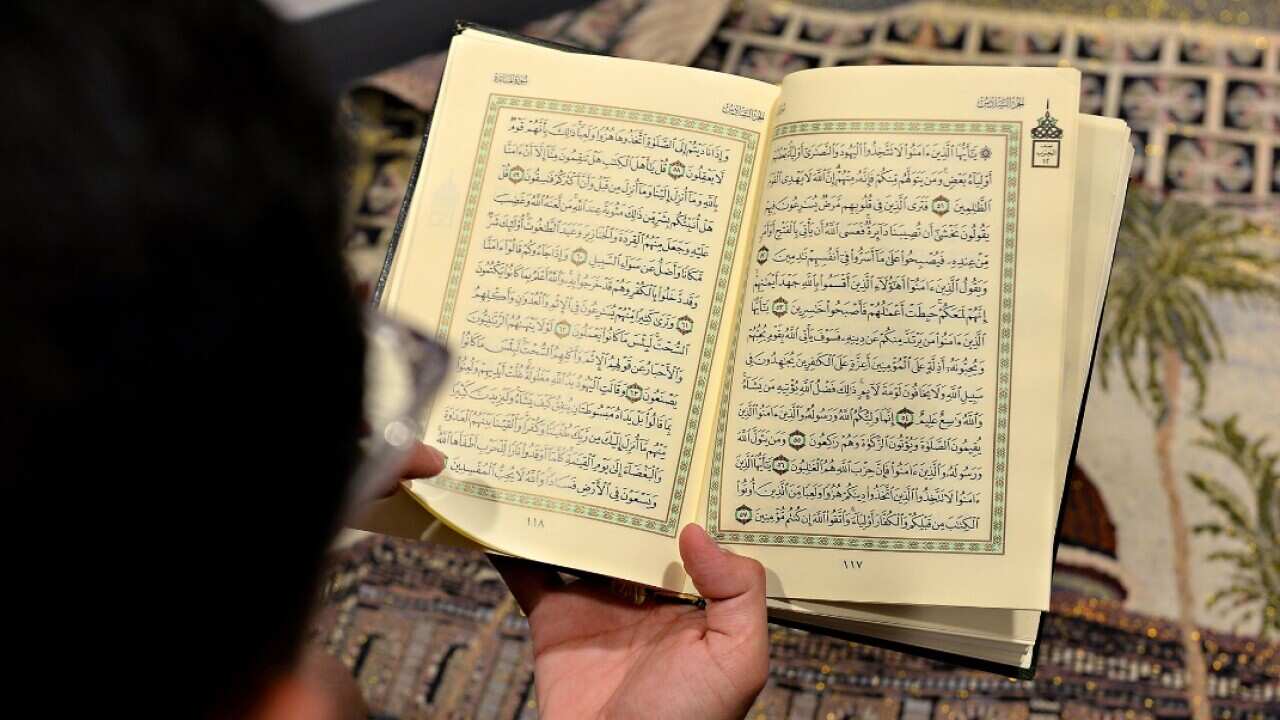 الجُزْءُ السَّادِسُ
الحزب
١٢
۞ يَٰٓأَيُّهَا ٱلَّذِينَ ءَامَنُوا۟ لَا تَتَّخِذُوا۟ ٱلْيَهُودَ وَٱلنَّصَٰرَىٰٓ أَوْلِيَآءَ بَعْضُهُمْ
أَوْلِيَآءُ بَعْضٍ ۚ وَمَن يَتَوَلَّهُم مِّنكُمْ فَإِنَّهُۥ مِنْهُمْ ۗ إِنَّ ٱللَّهَ لَا يَهْدِى ٱلْقَوْمَ
ٱلظَّٰلِمِينَ ٥١ فَتَرَى ٱلَّذِينَ فِى قُلُوبِهِم مَّرَضٌ يُسَٰرِعُونَ فِيهِمْ
يَقُولُونَ نَخْشَىٰٓ أَن تُصِيبَنَا دَآئِرَةٌ ۚ فَعَسَى ٱللَّهُ أَن يَأْتِىَ بِٱلْفَتْحِ أَوْ أَمْرٍ
مِّنْ عِندِهِۦ فَيُصْبِحُوا۟ عَلَىٰ مَآ أَسَرُّوا۟ فِىٓ أَنفُسِهِمْ نَٰدِمِينَ ٥٢
وَيَقُولُ ٱلَّذِينَ ءَامَنُوٓا۟ أَهَٰٓؤُلَآءِ ٱلَّذِينَ أَقْسَمُوا۟ بِٱللَّهِ جَهْدَ أَيْمَٰنِهِمْ
إِنَّهُمْ لَمَعَكُمْ ۚ حَبِطَتْ أَعْمَٰلُهُمْ فَأَصْبَحُوا۟ خَٰسِرِينَ ٥٣ يَٰٓأَيُّهَا
ٱلَّذِينَ ءَامَنُوا۟ مَن يَرْتَدَّ مِنكُمْ عَن دِينِهِۦ فَسَوْفَ يَأْتِى ٱللَّهُ بِقَوْمٍ يُحِبُّهُمْ
وَيُحِبُّونَهُۥٓ أَذِلَّةٍ عَلَى ٱلْمُؤْمِنِينَ أَعِزَّةٍ عَلَى ٱلْكَٰفِرِينَ يُجَٰهِدُونَ فِى
سَبِيلِ ٱللَّهِ وَلَا يَخَافُونَ لَوْمَةَ لَآئِمٍ ۚ ذَٰلِكَ فَضْلُ ٱللَّهِ يُؤْتِيهِ مَن يَشَآءُ ۚ
وَٱللَّهُ وَٰسِعٌ عَلِيمٌ ٥٤ إِنَّمَا وَلِيُّكُمُ ٱللَّهُ وَرَسُولُهُۥ وَٱلَّذِينَ ءَامَنُوا۟ ٱلَّذِينَ
يُقِيمُونَ ٱلصَّلَوٰةَ وَيُؤْتُونَ ٱلزَّكَوٰةَ وَهُمْ رَٰكِعُونَ ٥٥ وَمَن يَتَوَلَّ ٱللَّهَ
وَرَسُولَهُۥ وَٱلَّذِينَ ءَامَنُوا۟ فَإِنَّ حِزْبَ ٱللَّهِ هُمُ ٱلْغَٰلِبُونَ ٥٦ يَٰٓأَيُّهَا ٱلَّذِينَ
ءَامَنُوا۟ لَا تَتَّخِذُوا۟ ٱلَّذِينَ ٱتَّخَذُوا۟ دِينَكُمْ هُزُوًا وَلَعِبًا مِّنَ ٱلَّذِينَ أُوتُوا۟
ٱلْكِتَٰبَ مِن قَبْلِكُمْ وَٱلْكُفَّارَ أَوْلِيَآءَ ۚ وَٱتَّقُوا۟ ٱللَّهَ إِن كُنتُم مُّؤْمِنِينَ ٥٧
١١٧
الجُزْءُ السَّادِسُ
سُورَةُ المَائِدَةِ
وَإِذَا نَادَيْتُمْ إِلَى ٱلصَّلَوٰةِ ٱتَّخَذُوهَا هُزُوًا وَلَعِبًا ۚ ذَٰلِكَ بِأَنَّهُمْ قَوْمٌ
لَّا يَعْقِلُونَ ٥٨ قُلْ يَٰٓأَهْلَ ٱلْكِتَٰبِ هَلْ تَنقِمُونَ مِنَّآ إِلَّآ أَنْ ءَامَنَّا
بِٱللَّهِ وَمَآ أُنزِلَ إِلَيْنَا وَمَآ أُنزِلَ مِن قَبْلُ وَأَنَّ أَكْثَرَكُمْ فَٰسِقُونَ ٥٩ قُلْ
هَلْ أُنَبِّئُكُم بِشَرٍّ مِّن ذَٰلِكَ مَثُوبَةً عِندَ ٱللَّهِ ۚ مَن لَّعَنَهُ ٱللَّهُ وَغَضِبَ
عَلَيْهِ وَجَعَلَ مِنْهُمُ ٱلْقِرَدَةَ وَٱلْخَنَازِيرَ وَعَبَدَ ٱلطَّٰغُوتَ ۚ أُو۟لَٰٓئِكَ شَرٌّ
مَّكَانًا وَأَضَلُّ عَن سَوَآءِ ٱلسَّبِيلِ ٦٠ وَإِذَا جَآءُوكُمْ قَالُوٓا۟ ءَامَنَّا
وَقَد دَّخَلُوا۟ بِٱلْكُفْرِ وَهُمْ قَدْ خَرَجُوا۟ بِهِۦ ۚ وَٱللَّهُ أَعْلَمُ بِمَا كَانُوا۟ يَكْتُمُونَ
٦١ وَتَرَىٰ كَثِيرًا مِّنْهُمْ يُسَٰرِعُونَ فِى ٱلْإِثْمِ وَٱلْعُدْوَٰنِ وَأَكْلِهِمُ
ٱلسُّحْتَ ۚ لَبِئْسَ مَا كَانُوا۟ يَعْمَلُونَ ٦٢ لَوْلَا يَنْهَىٰهُمُ ٱلرَّبَّٰنِيُّونَ
وَٱلْأَحْبَارُ عَن قَوْلِهِمُ ٱلْإِثْمَ وَأَكْلِهِمُ ٱلسُّحْتَ ۚ لَبِئْسَ مَا كَانُوا۟
يَصْنَعُونَ ٦٣ وَقَالَتِ ٱلْيَهُودُ يَدُ ٱللَّهِ مَغْلُولَةٌ ۚ غُلَّتْ أَيْدِيهِمْ وَلُعِنُوا۟
بِمَا قَالُوا۟ ۘ بَلْ يَدَاهُ مَبْسُوطَتَانِ يُنفِقُ كَيْفَ يَشَآءُ ۚ وَلَيَزِيدَنَّ كَثِيرًا
مِّنْهُم مَّآ أُنزِلَ إِلَيْكَ مِن رَّبِّكَ طُغْيَٰنًا وَكُفْرًا ۚ وَأَلْقَيْنَا بَيْنَهُمُ ٱلْعَدَٰوَةَ
وَٱلْبَغْضَآءَ إِلَىٰ يَوْمِ ٱلْقِيَٰمَةِ ۚ كُلَّمَآ أَوْقَدُوا۟ نَارًا لِّلْحَرْبِ أَطْفَأَهَا ٱللَّهُ ۚ
وَيَسْعَوْنَ فِى ٱلْأَرْضِ فَسَادًا ۚ وَٱللَّهُ لَا يُحِبُّ ٱلْمُفْسِدِينَ
١١٨